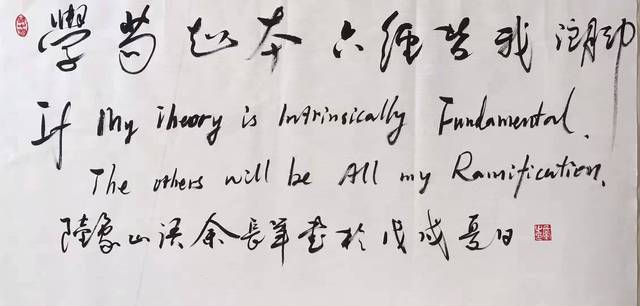 學苟知本六經皆我註腳
If My Theory is Intrinsically Fundamental.
The others will be All my Ramification.
陸象山語余長羊書於戊戌夏日